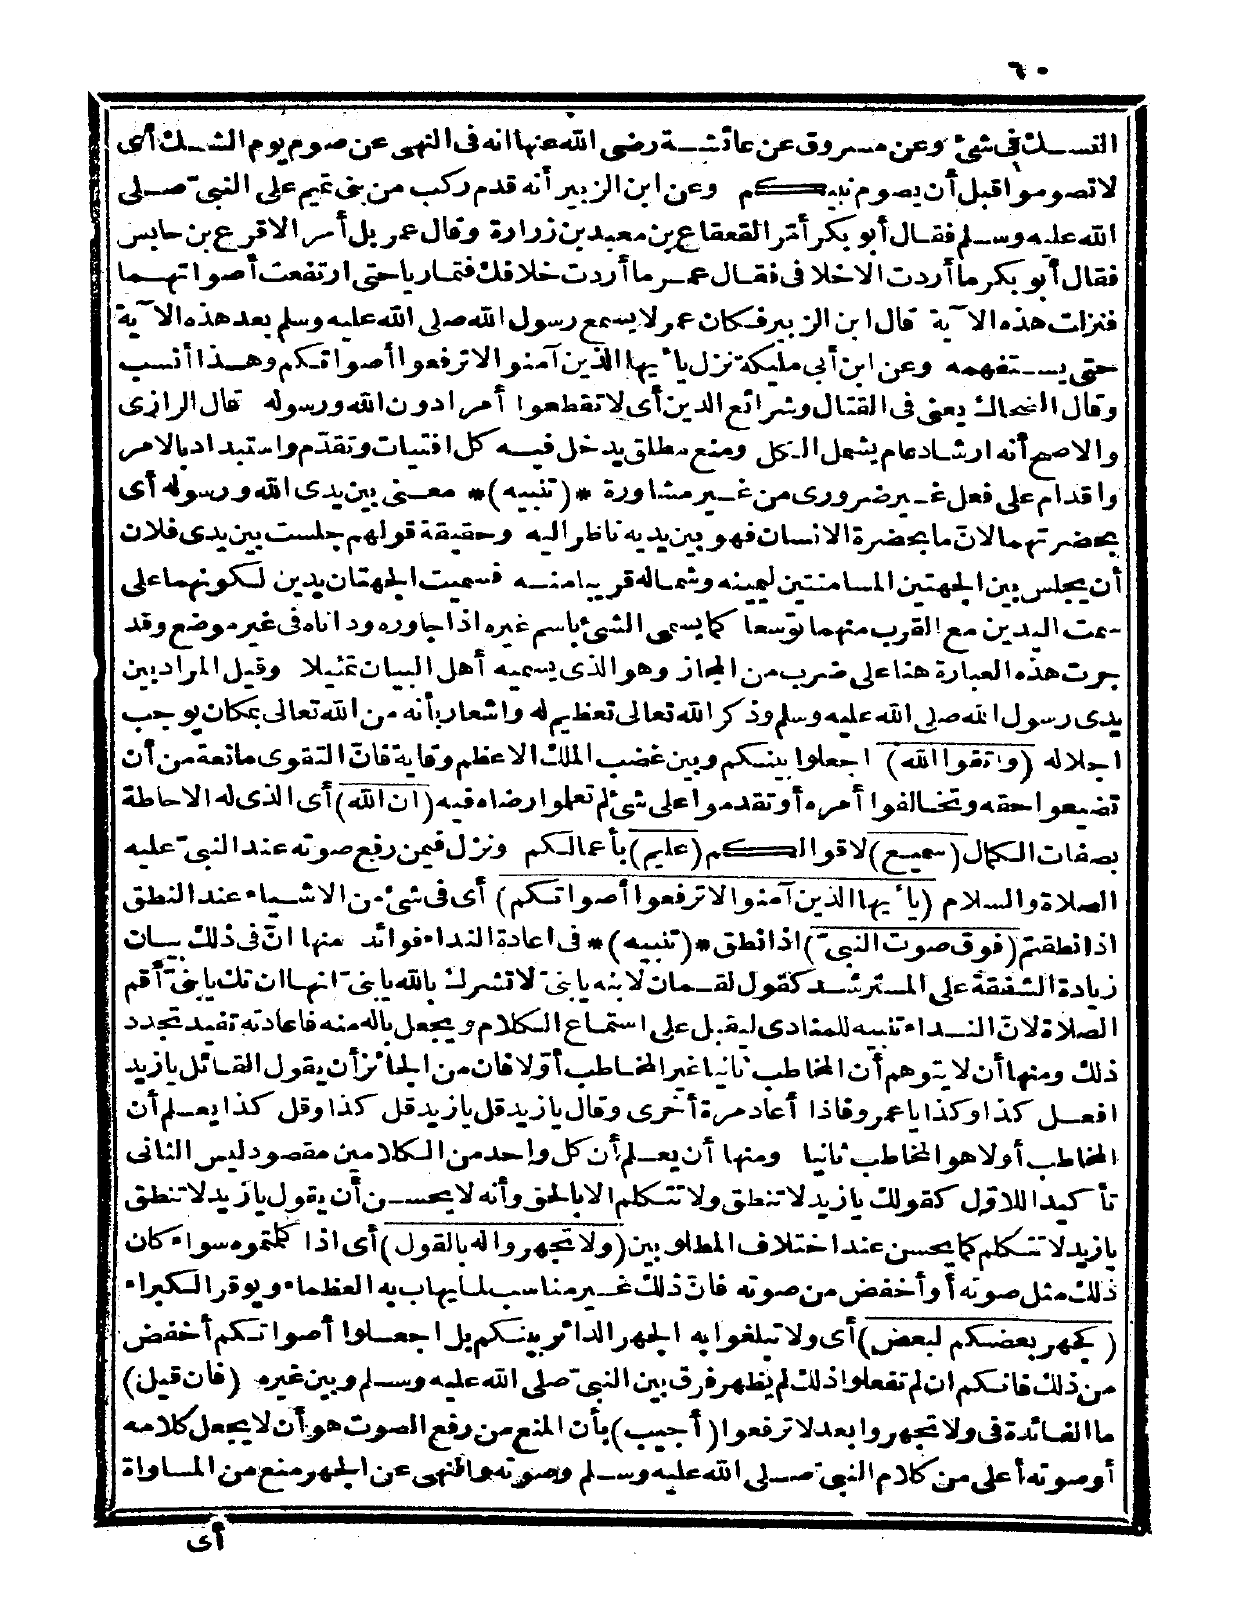 ٦٠
النسك فى شئ وعن مسروق عن عائشة رضى الله عنها انه فى النهى عن صوم يوم الشك أى
لا تصوموا قبل أن يصوم نبيكم وعن ابن الزبير أنه قدم ركب من بنى تميم على النبىّ صلى
الله عليه وسلم فقال أبو بكر أمّر القعقاع بن معبد بن زرارة وقال عمر بل أمر الاقرع بن حابس
فقال أبو بكر ما أردت الا خلافى فقال عمر ما أردت خلافك فتماريا حتى ارتفعت أصواتهما
فنزلت هذه الآية قال ابن الزبير فكان عمر لا يسمع رسول الله صلى الله عليه وسلم بعد هذه الآية
حتى يستفهمه وعن ابن أبى مليكة نزل يا أيها الذين آمنوا لا ترفعوا أصواتكم وهذا أنسب
وقال الضحاك يعنى فى القتال وشرائع الدين أى لا تقطعوا أمرا دون الله ورسوله قال الرازى
والاصح أنه ارشاد عام يشمل الكل ومنع مطلق يدخل فيه كل افتيات وتقدّم واستبداد بالامر
واقدام على فعل غير ضرورى من غير مشاورة *(تنبيه)* معنى بين يدى الله ورسوله أى
بحضرتهما لانّ ما بحضرة الانسان فهو بين يديه ناظر اليه وحقيقة قولهم جلست بين يدى فلان
أن يجلس بين الجهتين المسامتتين ليمينه وشماله قريبا منه فسميت الجهتان يدين لكونهما على
سمت اليدين مع القرب منهما توسعا كما يسمى الشئ باسم غيره اذا جاوره وداناه فى غير موضع وقد
جرت هذه العبارة هنا على ضرب من المجاز وهو الذى يسميه أهل البيان تمثيلا وقيل المراد بين
يدى رسول الله صلى الله عليه وسلم وذكر الله تعالى تعظيم له واشعار بأنه من الله تعالى بمكان يوجب
اجلاله (واتقوا الله) اجعلوا بينكم وبين غضب الملك الاعظم وقاية فانّ التقوى مانعة من أن
تضيعوا حقه وتخالفوا أمره أو تقدموا على شئ لم تعلموا رضاه فيه (ان الله) أى الذى له الاحاطة
بصفات الكمال (سميع) لاقوالكم (عليم) بأعمالكم ونزل فيمن رفع صوته عند النبىّ عليه
الصلاة والسلام (يا أيها الذين آمنوا لا ترفعوا أصواتكم) أى فى شئ من الاشياء عند النطق
اذا نطقتم (فوق صوت النبىّ) اذا نطق *(تنبيه)* فى اعادة النداء فوائد منها انّ فى ذلك بيان
زيادة الشفقة على المسترشد كقول لقمان لابنه يا بنىّ لا تشرك بالله يا بنىّ انها ان تك يا بنىّ أقم
الصلاة لانّ النداء تنبيه للمنادى ليقبل على استماع الكلام ويجعل باله منه فاعادته تفيد تجدد
ذلك ومنها أن لا يتوهم أن المخاطب ثانيا غير المخاطب أوّلا فان من الجائز أن يقول القائل يا زيد
افعل كذا وكذا يا عمرو فاذا أعاد مرة أخرى وقال يا زيد قل يا زيد قل كذا وقل كذا يعلم أن
المخاطب أولا هو المخاطب ثانيا ومنها أن يعلم أن كل واحد من الكلامين مقصود ليس الثانى
تأكيدا للاوّل كقولك يا زيد لا تنطق ولا تتكلم الا بالحق وأنه لا يحسن أن يقول يا زيد لا تنطق
يا زيد لا تتكلم كما يحسن عند اختلاف المطلوبين (ولا تجهروا له بالقول) أى اذا كلمتموه سواء كان
ذلك مثل صوته أو أخفض من صوته فانّ ذلك غير مناسب لما يهاب به العظماء ويوقر الكبراء
(كجهر بعضكم لبعض) أى ولا تبلغوا به الجهر الدائر بينكم بل اجعلوا أصواتكم أخفض
من ذلك فانكم ان لم تفعلوا ذلك لم يظهر فرق بين النبىّ صلى الله عليه وسلم وبين غيره (فان قيل)
ما الفائدة فى ولا تجهروا بعد لا ترفعوا (أجيب) بأن المنع من رفع الصوت هو أن لا يجعل كلامه
أو صوته أعلى من كلام النبىّ صلى الله عليه وسلم وصوته والنهى عن الجهر منع من المساواة
أى